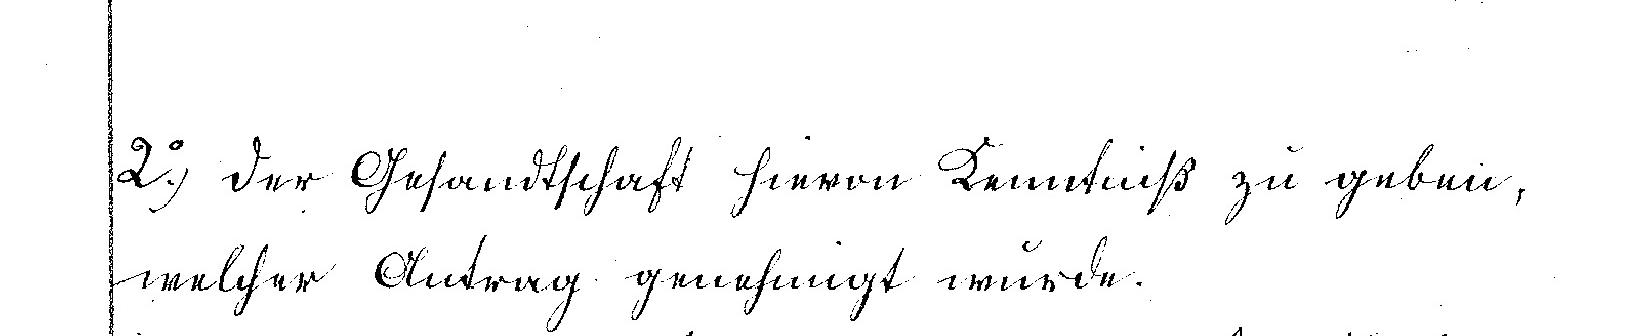 2.º) der Gesandtschaft hievon Kenntniß zu geben,
welcher Antrag genehmigt wurde.